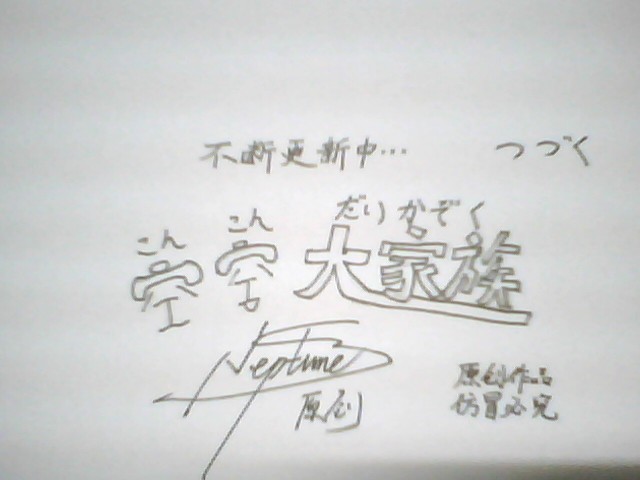 不断更新中… つづく
こん こん だいかぞく
大家族
Neptune
原创
原创作品
仿冒必究